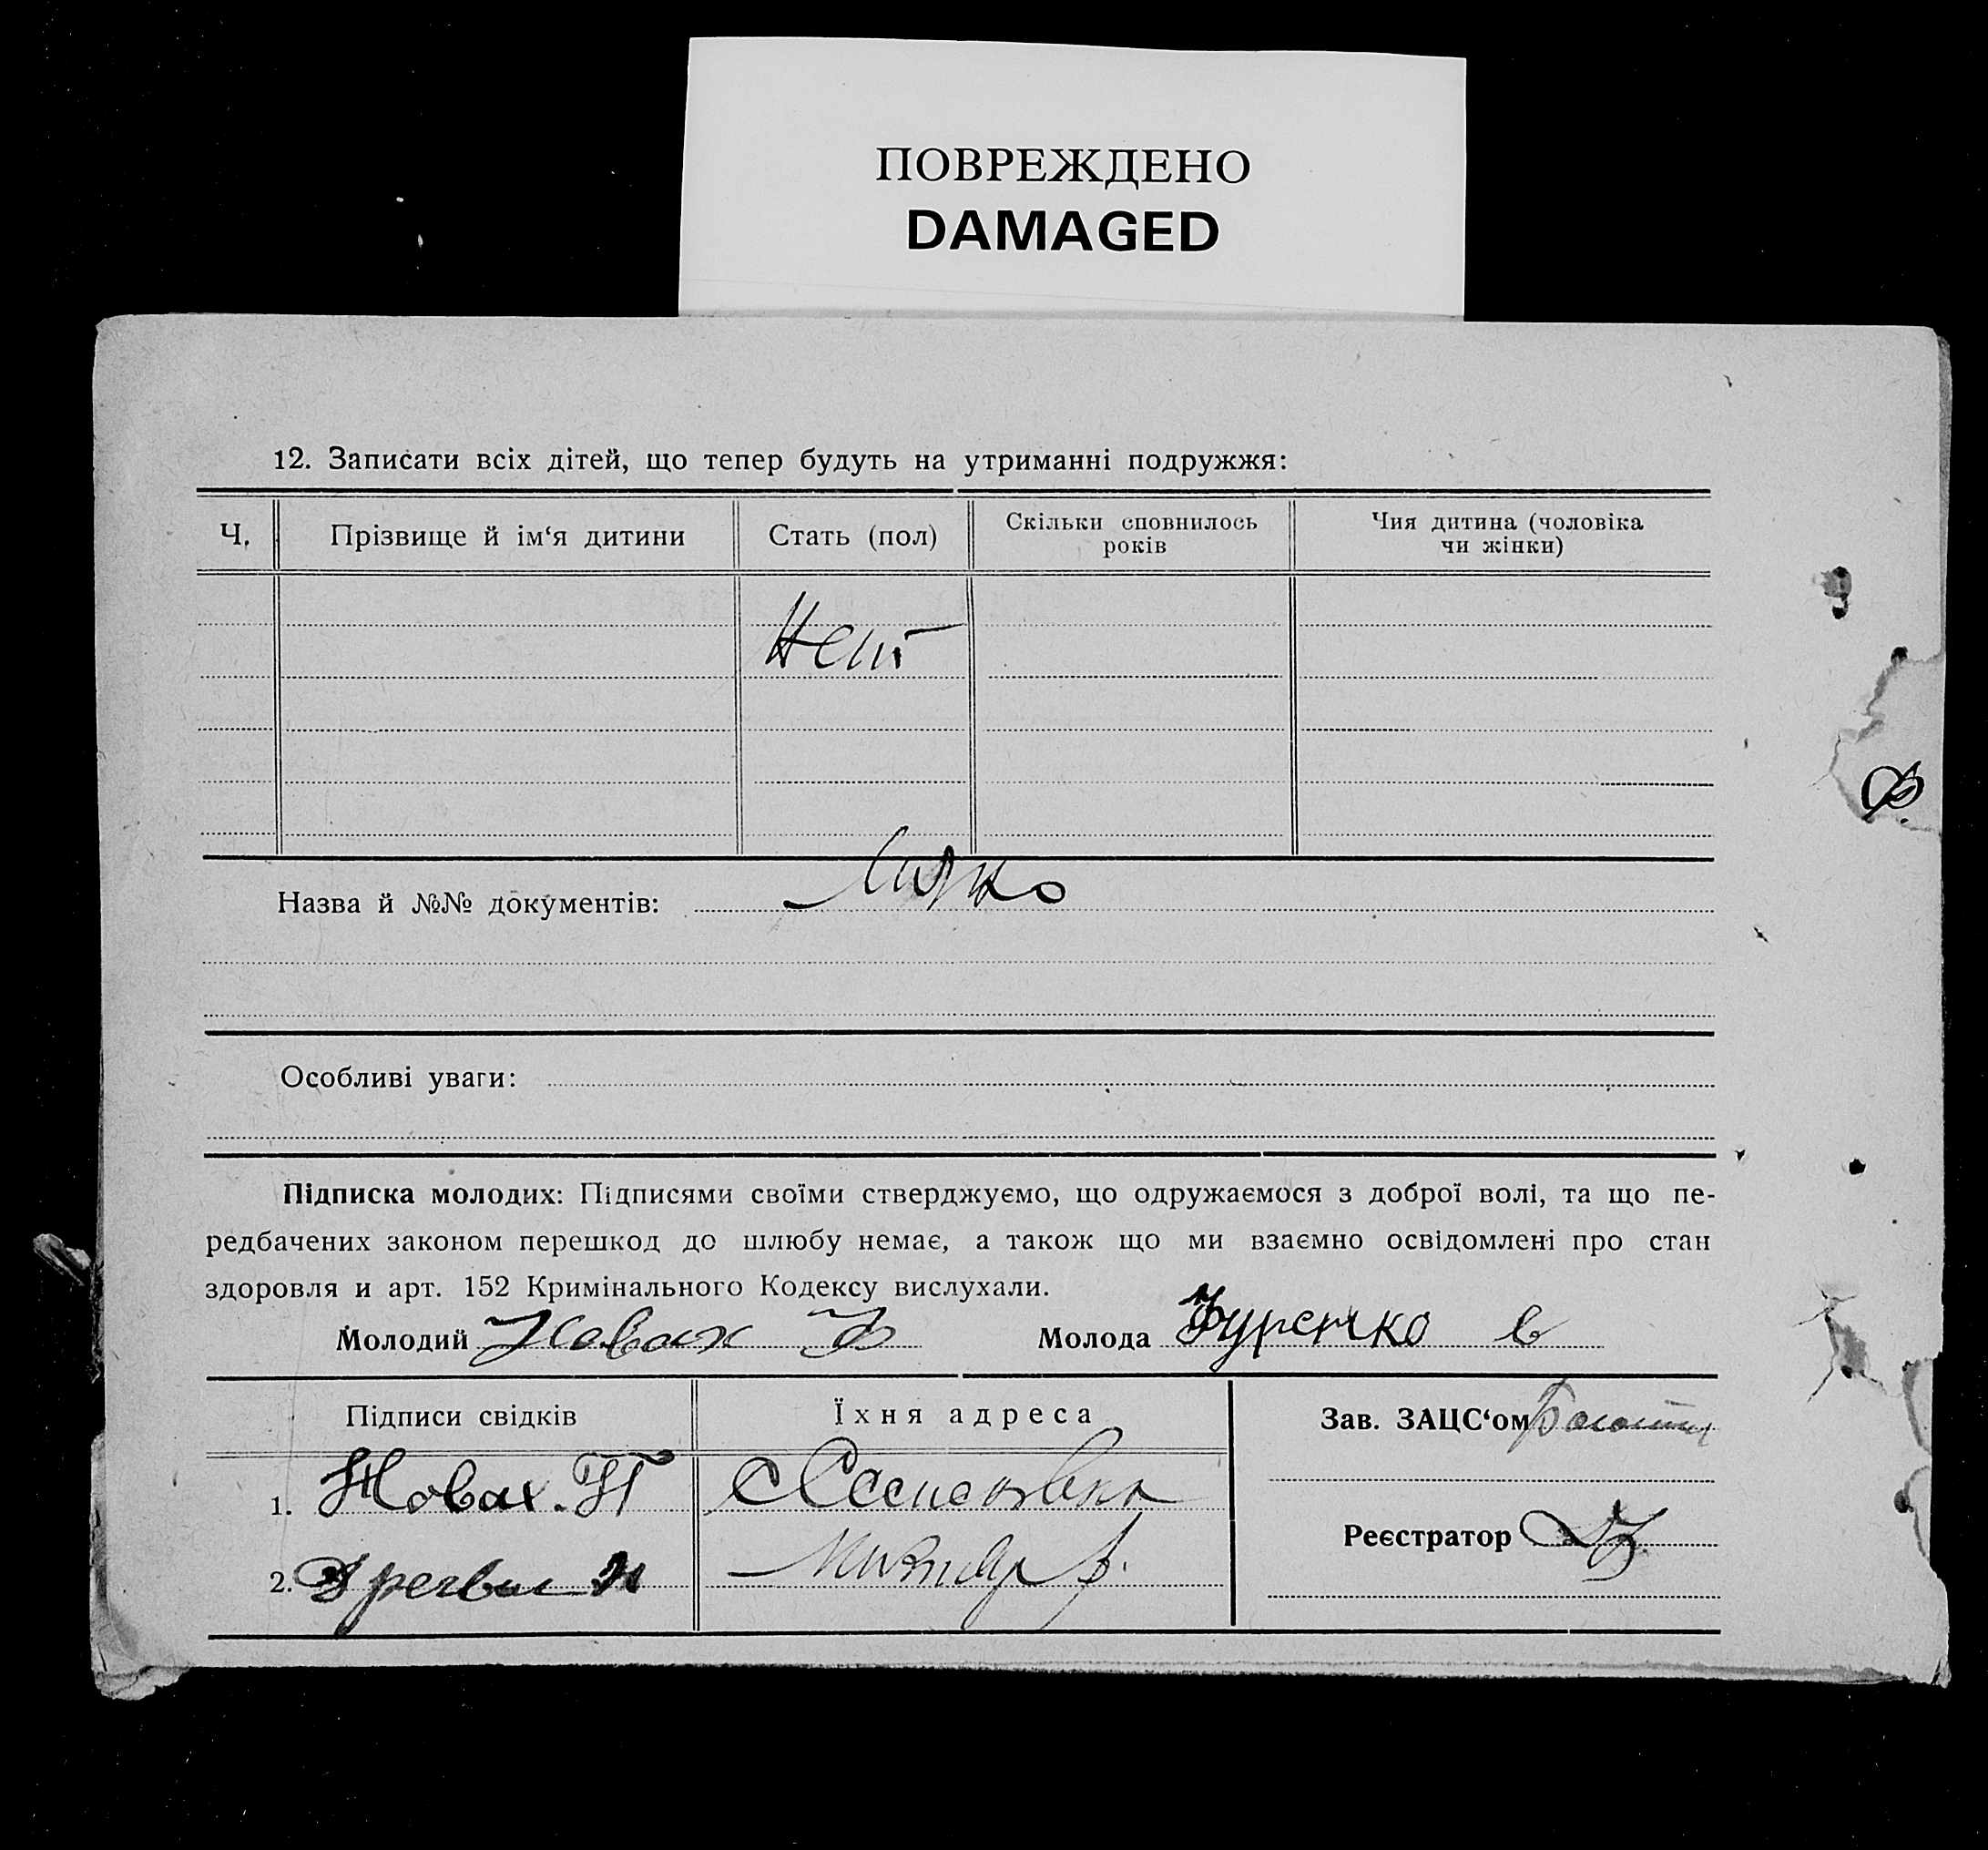 ПОВРЕЖДЕНО
DAMAGED
12. Записати всіх дітей, що тепер будуть на утриманні подружжя:
Ч. Прізвище й ім‘я дитини Стать (пол) Скільки сповнилось років Чия дитина (чоловіка чи жінки)
Нет
Назва й №№ документів:
Особливі уваги:
Підписка молодих: Підписями своїми стверджуємо, що одружаємося з доброї волі, та що пе-
редбачених законом перешкод до шлюбу немає, а також що ми взаємно освідомлені про стан
здоровля и арт. 152 Кримінального Кодексу вислухали.
Молодий Новак Молода
Підписи свідків Їхня адреса Зав. ЗАЦС‘ом
1. Новак
Реєстратор
2.